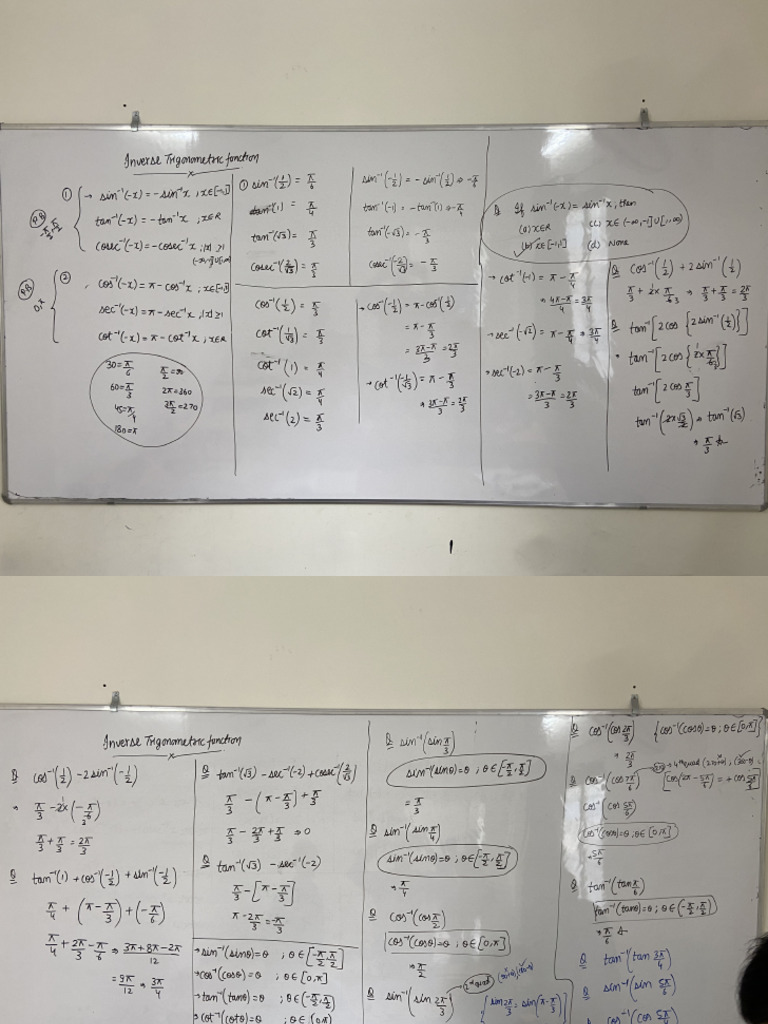 Inverse Trigonometric function
① → sin⁻¹(-x) = -sin⁻¹x ; x∈[-1,1]
tan⁻¹(-x) = -tan⁻¹x ; x∈R
cosec⁻¹(-x) = -cosec⁻¹x ; |x| ≥1
-π/2, π/2
② cos⁻¹(-x) = π - cos⁻¹x ; x∈[-1,1]
sec⁻¹(-x) = π - sec⁻¹x ; |x| ≥1
cot⁻¹(-x) = π - cot⁻¹x ; x∈R
0,π
30 = π/6
60 = π/3
45 = π/4
180 = π
π/2 = 90
2π = 360
3π/2 = 270
① sin⁻¹(1/2) = π/6
tan⁻¹(1) = π/4
tan⁻¹(√3) = π/3
cosec⁻¹(2/√3) = π/3
cos⁻¹(1/2) = π/3
cot⁻¹(1/√3) = π/3
cot⁻¹(1) = π/4
sec⁻¹(√2) = π/4
sec⁻¹(2) = π/3
sin⁻¹(-1/2) = -sin⁻¹(1/2) ⇒ -π/6
tan⁻¹(-1) = -tan⁻¹(1) ⇒ -π/4
tan⁻¹(-√3) = -π/3
cosec⁻¹(-2/√3) = -π/3
→ cos⁻¹(-1/2) = π - cos⁻¹(1/2)
= π - π/3
= 3π-π/3 = 2π/3
→ cot⁻¹(-1/√3) = π - π/3
⇒ 3π-π/3 = 2π/3
Q If sin⁻¹(-x) = sin⁻¹x, then
(a) x∈R (c) x∈(-∞,-1]∪[1,∞)
(b) x∈[-1,1] (d) None
→ cot⁻¹(-1) = π - π/4
⇒ 4π-π/4 = 3π/4
→ sec⁻¹(-√2) = π - π/4 ⇒ 3π/4
→ sec⁻¹(-2) = π - π/3
= 3π-π/3 = 2π/3
Q cos⁻¹(1/2) + 2sin⁻¹(1/2)
π/3 + 2×π/6 ⇒ π/3 + π/3 = 2π/3
Q tan⁻¹[2cos{2sin⁻¹(1/2)}]
tan⁻¹[2cos{2×π/6}]
tan⁻¹[2cosπ/3]
tan⁻¹(2×√3/2) ⇒ tan⁻¹(√3)
⇒ π/3
Inverse Trigonometric function
Q cos⁻¹(1/2) - 2sin⁻¹(-1/2)
⇒ π/3 - 2×(-π/6)
π/3 + π/3 = 2π/3
Q tan⁻¹(1) + cos⁻¹(-1/2) + sin⁻¹(-1/2)
π/4 + (π - π/3) + (-π/6)
π/4 + 2π/3 - π/6 ⇒ 3π+8π-2π/12
= 9π/12 ⇒ 3π/4
Q tan⁻¹(√3) - sec⁻¹(-2) + cosec⁻¹(2/√3)
π/3 - (π - π/3) + π/3
π/3 - 2π/3 + π/3 ⇒ 0
Q tan⁻¹(√3) - sec⁻¹(-2)
π/3 - [π - π/3]
π - 2π/3 = -π/3
→ sin⁻¹(sinθ) = θ ; θ∈[-π/2, π/2]
→ cos⁻¹(cosθ) = θ ; θ∈[0,π]
→ tan⁻¹(tanθ) = θ ; θ∈(-π/2, π/2)
→ cot⁻¹(cotθ) = θ ; θ∈(0,π)
Q sin⁻¹(sinπ/3)
sin⁻¹(sinθ) = θ ; θ∈[-π/2, π/2]
= π/3
Q sin⁻¹(sinπ/4)
sin⁻¹(sinθ) = θ ; θ∈[-π/2, π/2]
⇒ π/4
Q cos⁻¹(cosπ/2)
cos⁻¹(cosθ) = θ ; θ∈[0,π]
⇒ π/2
Q sin⁻¹(sin2π/3)
[sin2π/3 = sin(π-π/3)]
Q cos⁻¹(cos2π/3) {cos⁻¹(cosθ) = θ ; θ∈[0,π]}
⇒ 2π/3
Q cos⁻¹(cos7π/6)
[cos(2π-5π/6) = +cos5π/6]
cos⁻¹(cos5π/6)
cos⁻¹(cosθ) = θ ; θ∈[0,π]
⇒ 5π/6
Q tan⁻¹(tanπ/6)
tan⁻¹(tanθ) = θ ; θ∈(-π/2, π/2)
⇒ π/6
Q tan⁻¹(tan3π/4)
Q sin⁻¹(sin5π/6)
Q cos⁻¹(cos5π/4)